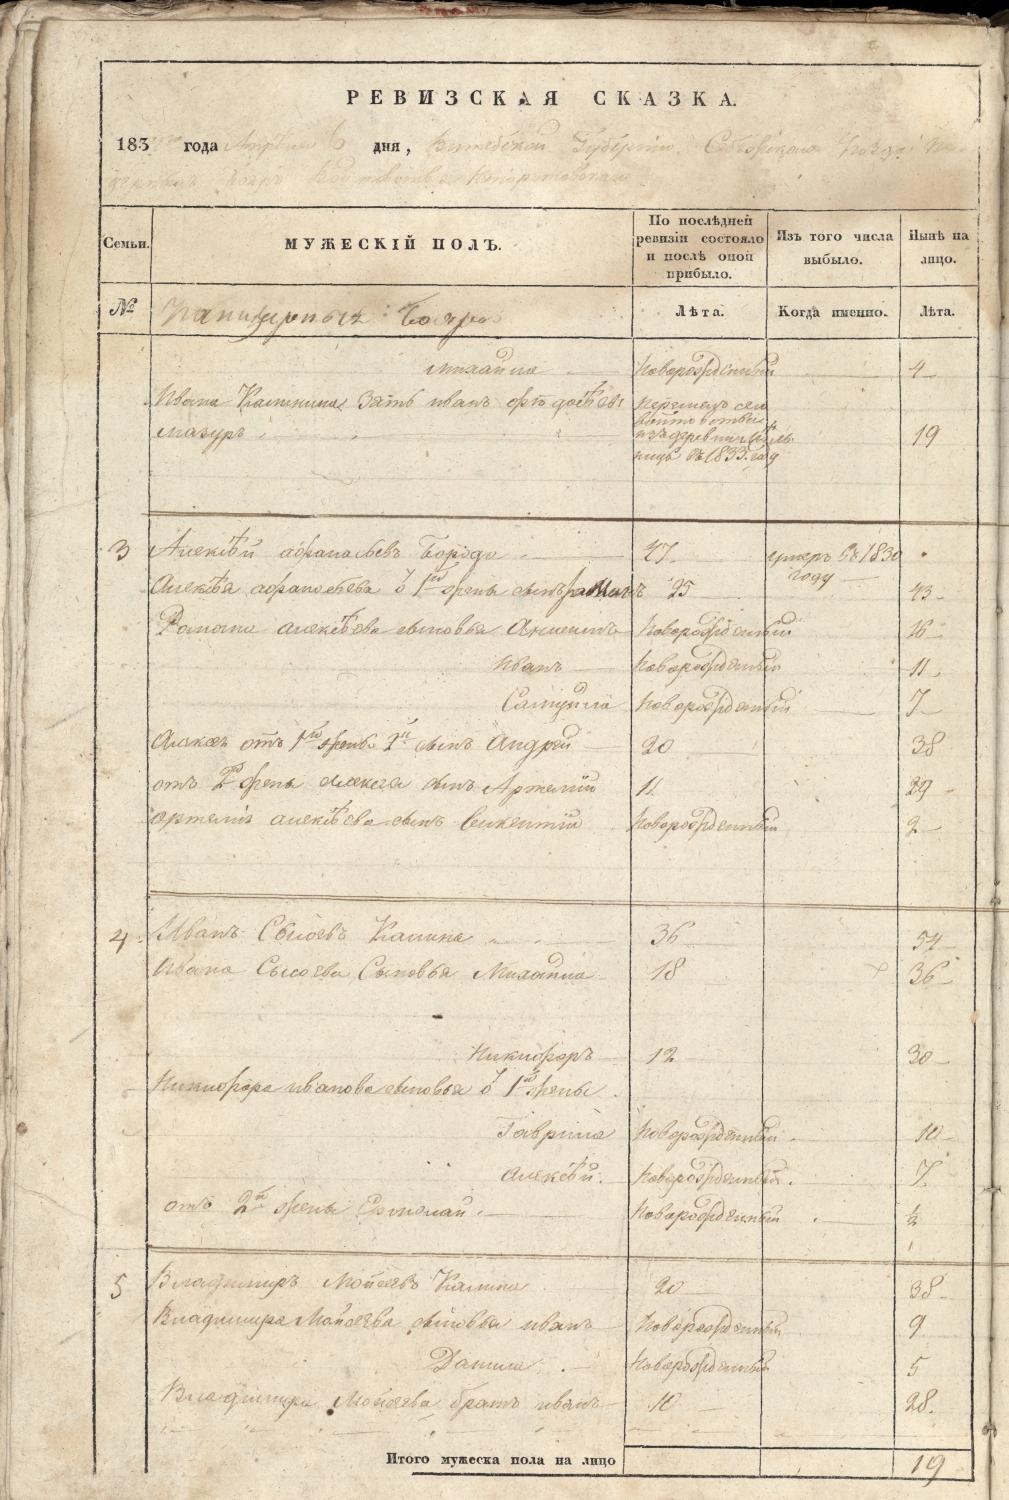 РЕВИЗСКАЯ СКАЗКА.
183 года Апреля 6 дня, Витебской Губернiи
Семьи.
МУЖЕСКІЙ ПОЛЪ.
По послѣдней ревизіи состояло и послѣ оной прибыло.
Изъ того числа выбыло.
Нынѣ на лицо.
№
Лѣта.
Когда именно.
Лѣта.
Михайла Новорожденный 4
Ивана Калинина Зять иванъ
мазуръ изъ деревни въ 1833 году 19
3 Алексѣй афанасьевъ Борода 47 умеръ въ 1830 году
Алексѣя афанасьева 1й жены сынъ Романъ 25 43
Романа алексѣева сыновья Новорожденный 16
Иванъ Новорожденный 11
Самуила Новорожденный 7
отъ 1й жены 2й сынъ Андрей 20 38
отъ 2й жены сынъ Артемiй 11 29
артемiя алексѣева сынъ Викентiй Новорожденный 2
4 Иванъ Сысоевъ Калина 36 54
Ивана Сысоева Сыновья Михайла 18 36
Никифоръ 12 30
Никифора иванова сыновья 1й жены
Гаврила Новорожденный 10
алексѣй Новорожденный 7
отъ 2й жены Новорожденный ½
5 Владимиръ Мойсеевъ Калина 20 38
Владимира Мойсеева сыновья иванъ Новорожденный 9
Данила Новорожденный 5
Владимира Мойсеева братъ иванъ 10 28
Итого мужеска пола на лицо 19